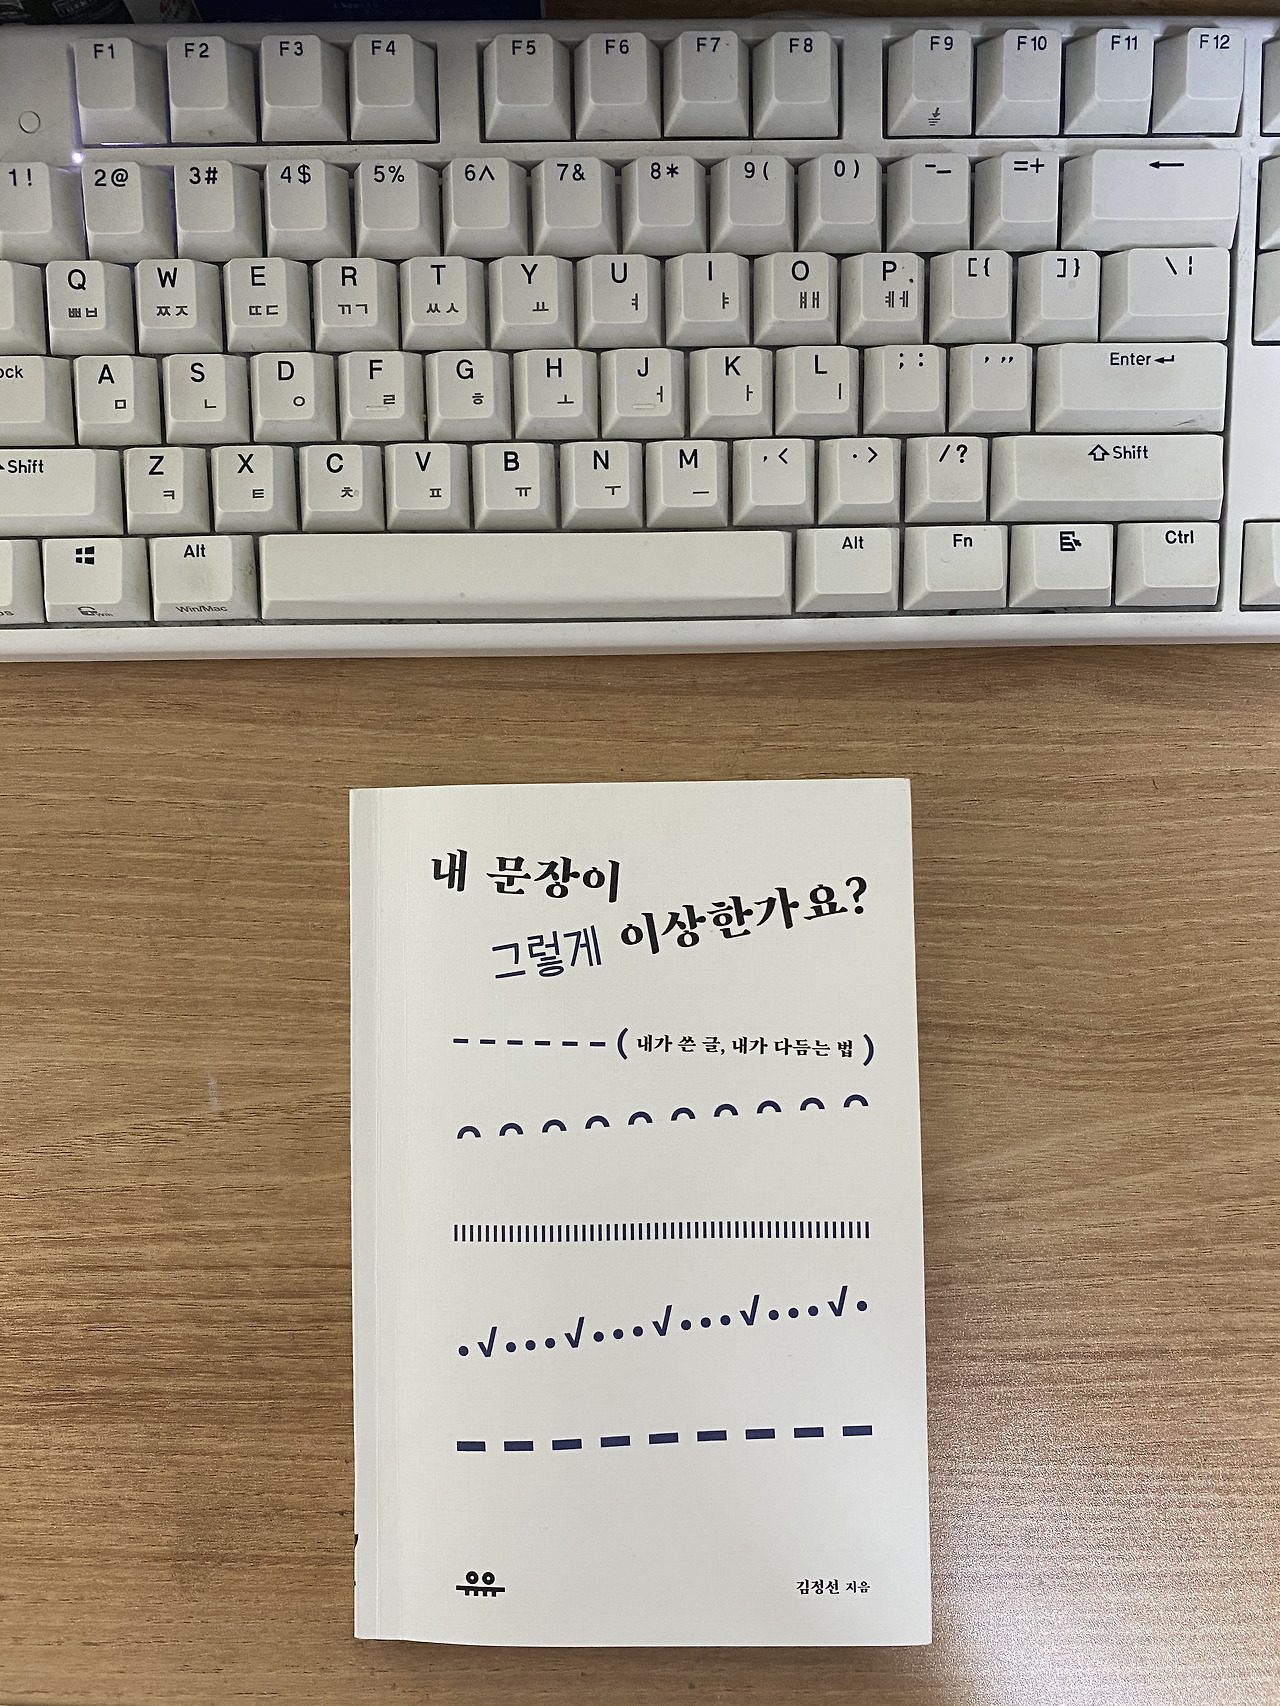 F1 F2 F3 F4 F5 F6 F7 F8 F9 F10 F11 F12
1! 2@ 3# 4$ 5% 6^ 7& 8* 9( 0) -_ =+ ←
Q W E R T Y U I O P [{ ]} \|
ㅃㅂ ㅉㅈ ㄸㄷ ㄲㄱ ㅆㅅ ㅛ ㅕ ㅑ ㅒㅐ ㅖㅔ
ock A S D F G H J K L ;: '" Enter
ㅁ ㄴ ㅇ ㄹ ㅎ ㅗ ㅓ ㅏ ㅣ
Shift Z X C V B N M ,< .> /? Shift
ㅋ ㅌ ㅊ ㅍ ㅠ ㅜ ㅡ
Alt Alt Fn Ctrl
Win/Mac
내 문장이
그렇게 이상한가요?
(내가 쓴 글, 내가 다듬는 법)
유유
김정선 지음